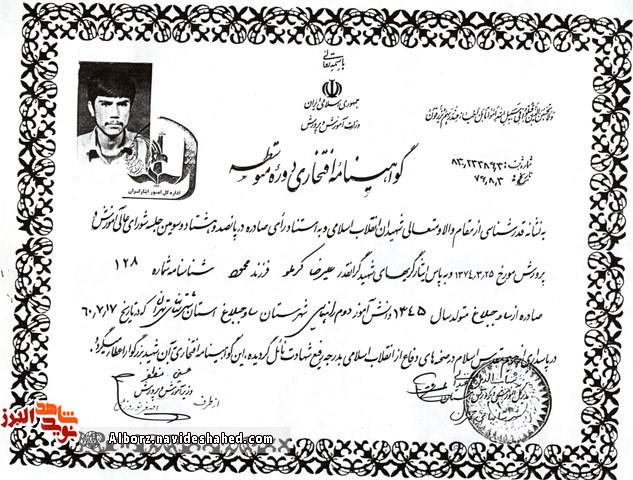 باسمه تعالی
جمهوری اسلامی ایران
وزارت آموزش و پرورش
ولا تحسبن الذین قتلوا فی سبیل الله امواتا بل احیاء عند ربهم یرزقون
گواهینامه افتخاری دوره متوسطه
شماره ثبت: ۸۳,۲۳۳۸۹۳
تاریخ: ۷۹,۸,۳
اداره کل امور ایثارگران
به نشانه قدرشناسی از مقام والا و متعالی شهیدان انقلاب اسلامی و به استناد رأی صادره در پانصد و هشتاد و سومین جلسه شورای عالی آموزش و
پرورش مورخ ۱۳۷۴,۳,۲۵ و به پاس ایثارگریهای شهید گرانقدر علیرضا کرملو فرزند محمود شناسنامه شماره ۱۲۸
صادره از ساوجبلاغ متولد سال ۱۳۴۵ دانش آموز دوم راهنمایی شهرستان ساوجبلاغ استان تهران که در تاریخ ۶۰,۷,۱۷
در پاسداری از مقدس اسلام در صحنه های دفاع از انقلاب اسلامی بدرجه رفیع شهادت نائل گردیده، این گواهینامه افتخاری آن شهید بزرگوار اعطا میگردد.
حسین مظفر
وزیر آموزش و پرورش
از طرف
نوید شاهد البرز
Alborz.navideshahed.com